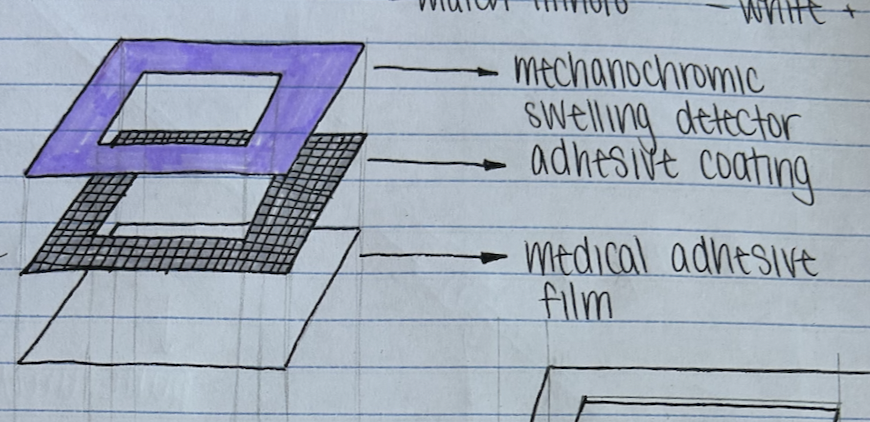 – White +
mechanochromic
swelling detector
adhesive coating
medical adhesive
film